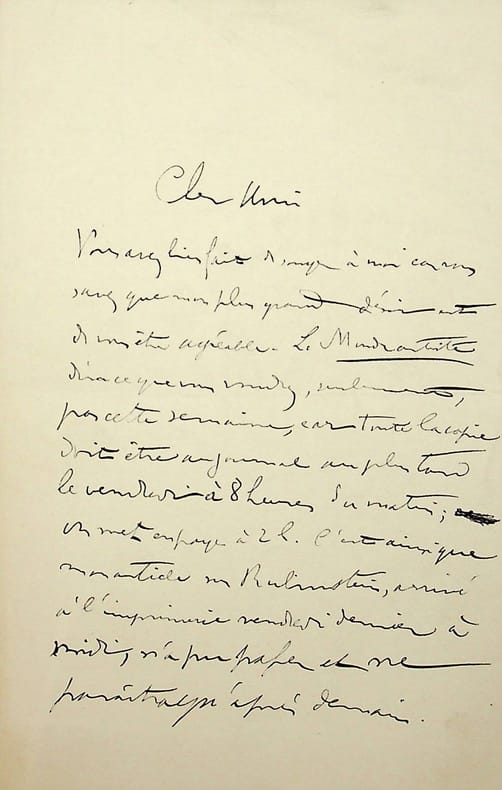 Cher Ami
Vous avez bien fait de songer à moi car vous
savez que mon plus grand désir est
de vous être agréable. Le Monde artiste
dira ce que vous voudrez, seulement,
pas cette semaine, car toute la copie
doit être au journal au plus tard
le vendredi à 8 heures du matin;
on met en page à 2 h. C'est ainsi que
mon article sur Rubinstein, arrivé
à l'imprimerie vendredi dernier à
midi, n'a pu passer et ne
paraîtra qu'après demain.